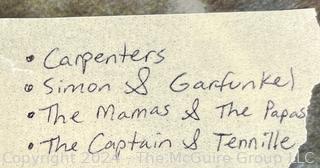 • Carpenters
• Simon & Garfunkel
• The Mamas & The Papas
• The Captain & Tennille
Copyright 2024 - The McGuire Group LLC